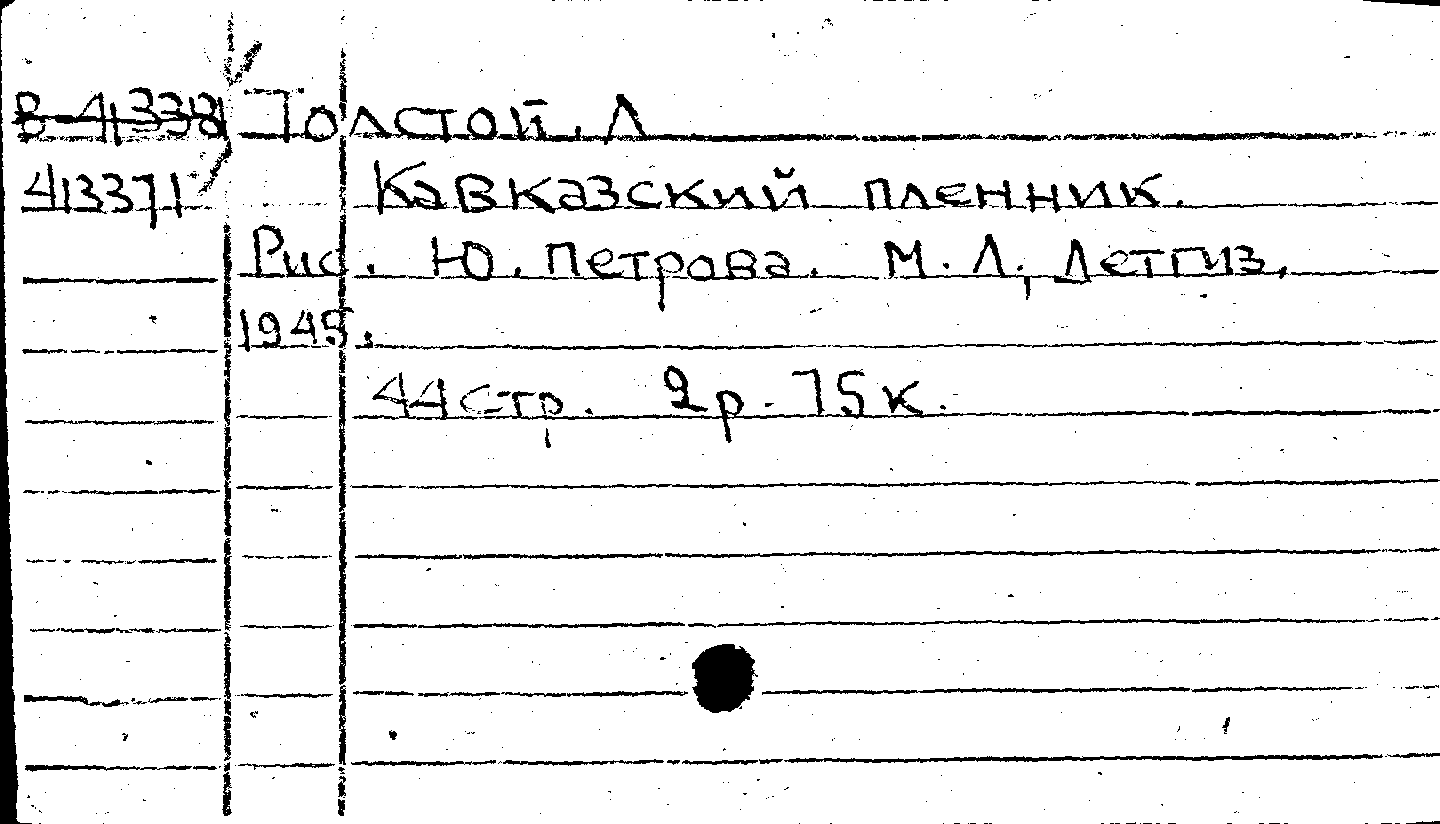 Толстой, Л
41337 Кавказский пленник.
Рис. Ю. Петрова. М. Л., Детгиз,
1945.
44 стр. 2 р. 75 к.